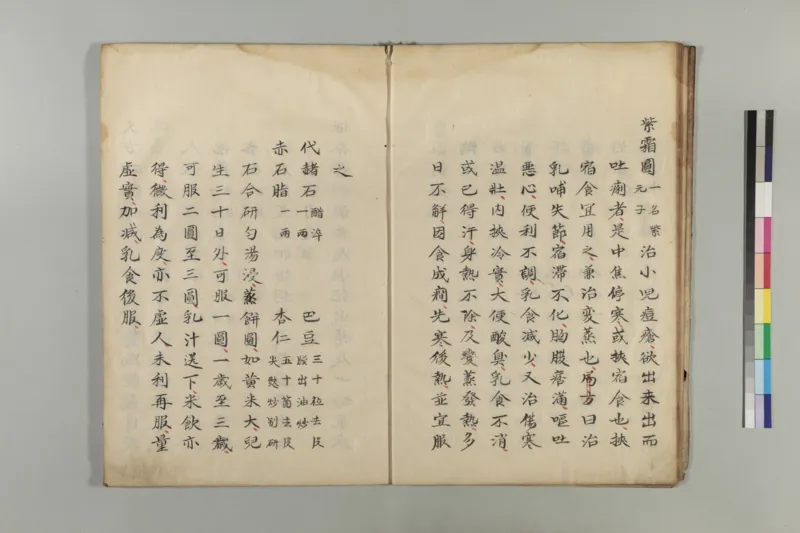 紫霜圓一名紫元子治小児痘瘡欲出未出而
吐痢者是中焦停寒或挾宿食也挾
宿食宜用之兼治變蒸也局方曰治
乳哺失節宿滞不化胸腹痞満嘔吐
悪心便利不調乳食減少又治傷寒
温壮内挾冷實大便酸臭乳食不消
或已得汗身熱不除及變蒸發熱多
日不解因食成癇先寒後熱並宜服
之
代赭石一兩醋淬 巴豆三十粒去皮膜出油炒
赤石脂一兩 杏仁五十箇去皮尖麩炒別研
石合研匀湯浸蒸餅圓如黄米大兒
生三十日外可服一圓一歳至三歳
可服二圓至三圓乳汁送下米飲亦
得微利為度亦不虚人未利再服量
虚實加减乳食後服